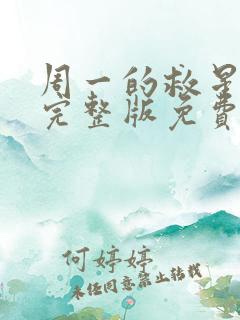 周一的救星
完整版免费
何婷婷
未经同意禁止转载